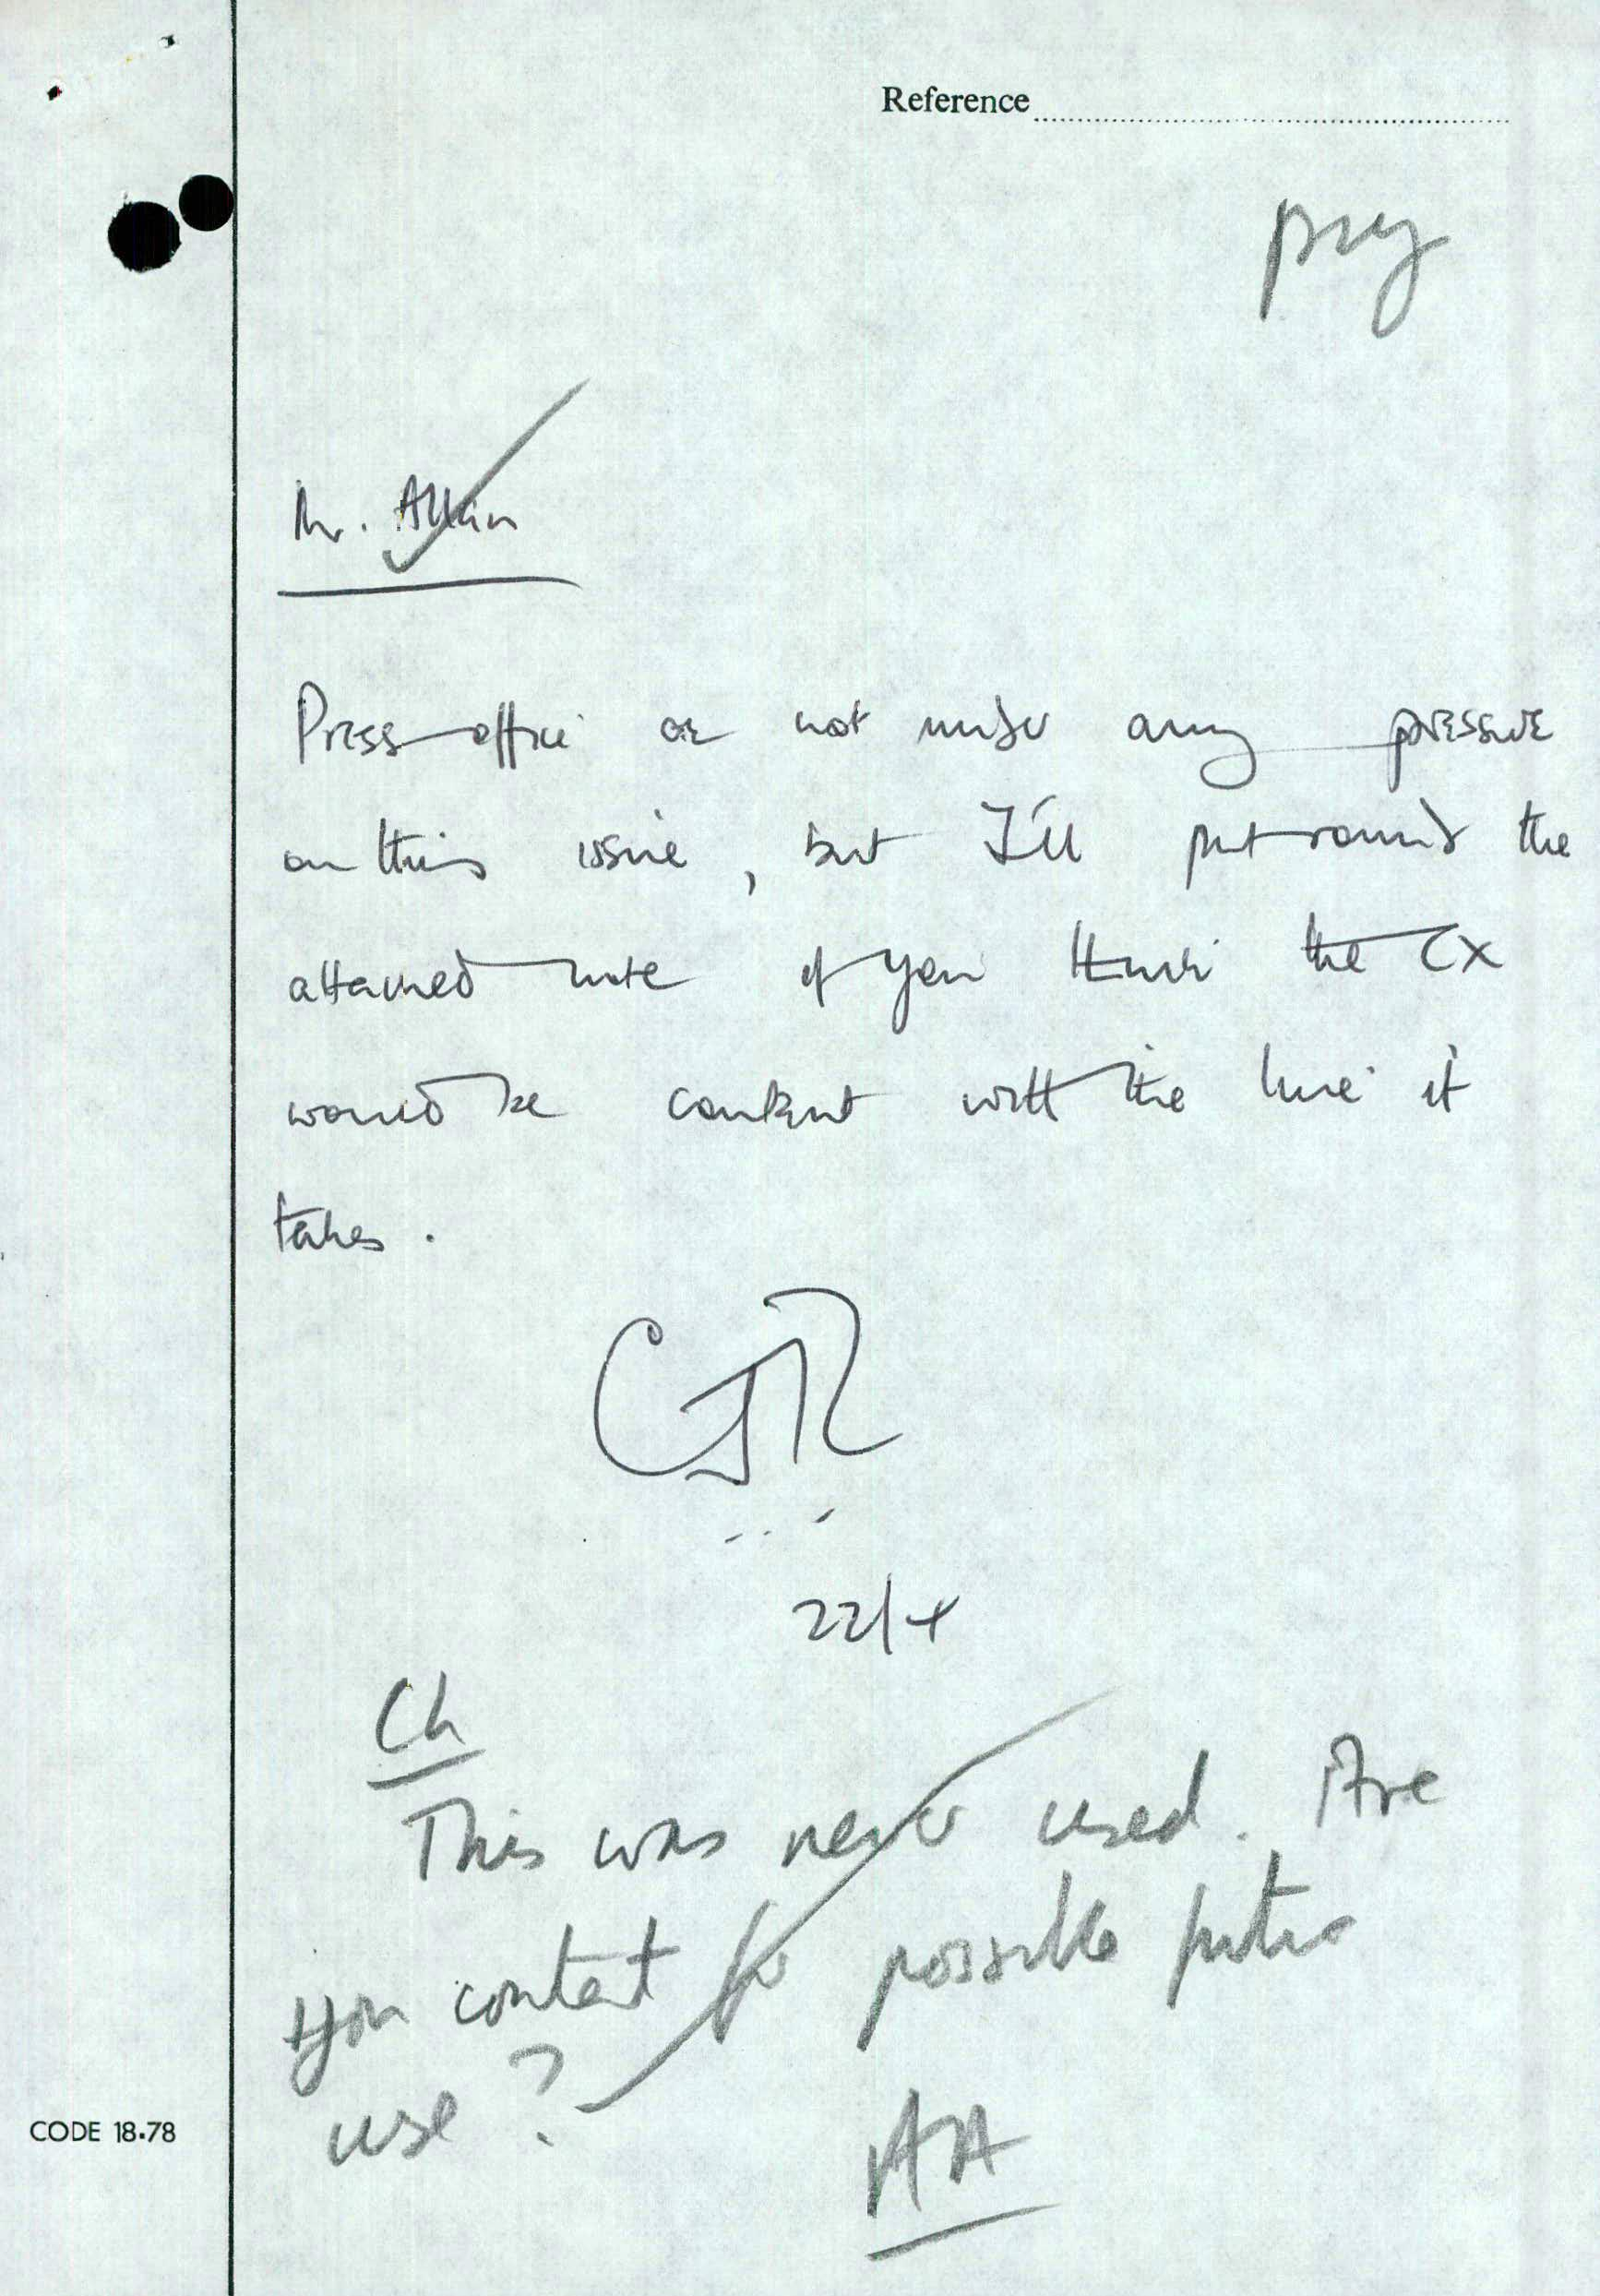 Reference
Mr. Allan
Press office are not under any pressure
on this issue, but I'll put round the
attached note if you think the CX
would be content with the line it
takes.
CJR
22/4
Ch
This was never used. Are
you content for possible future
use?
AA
CODE 18.78